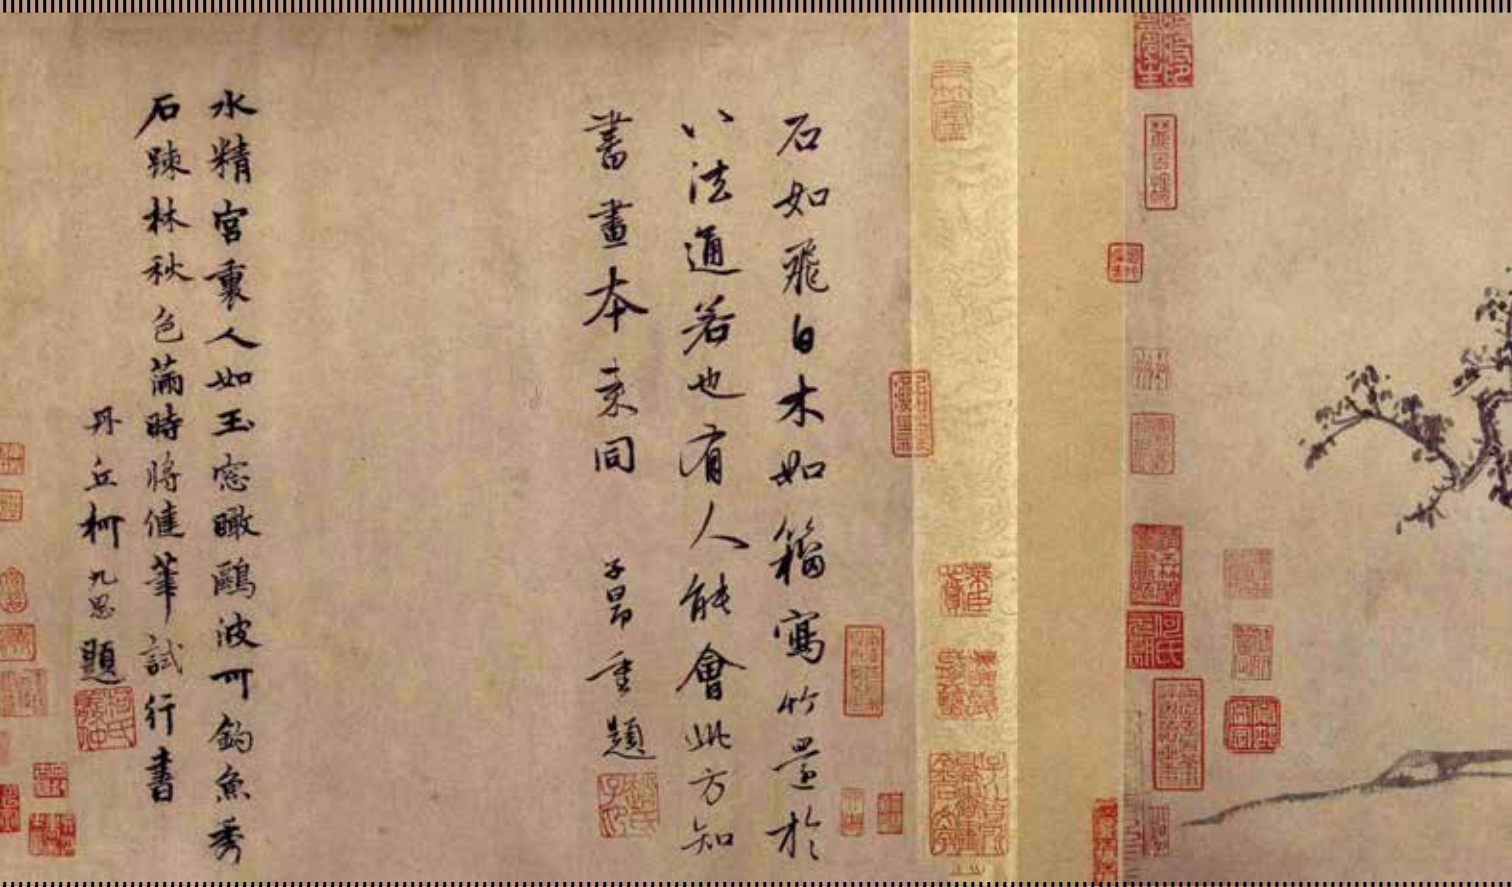 石如飛白木如籀寫竹還於
八法通若也有人能會此方知
書畫本来同 子昂重題
水精宮裏人如玉窓瞰鷗波可釣魚秀
石踈林秋色滿時將健筆試行書
丹丘柯九思題